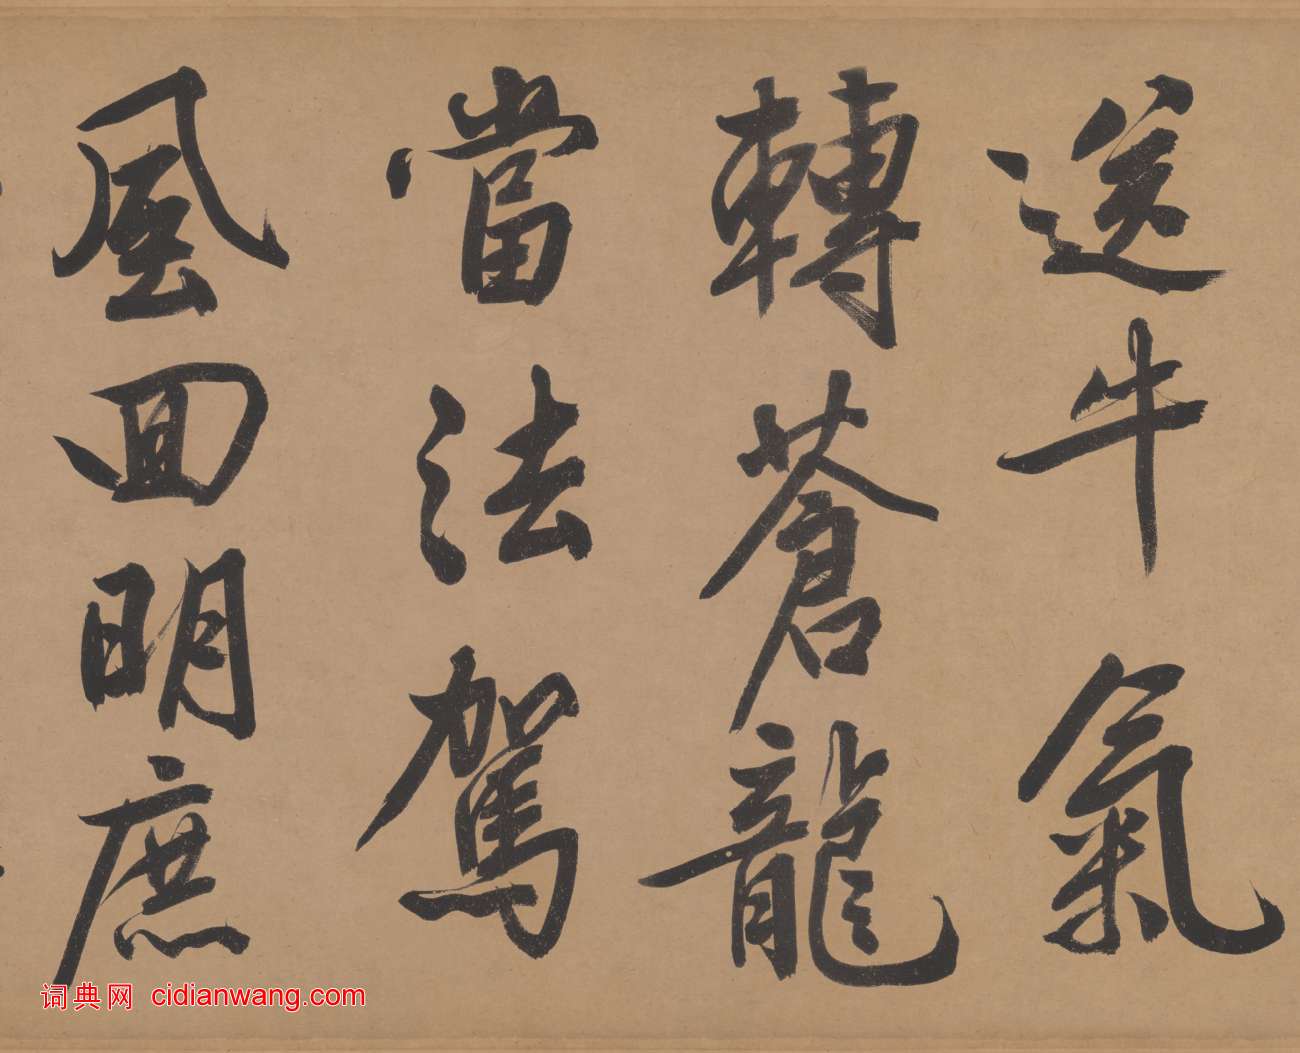 送牛氣
轉蒼龍
當法駕
風回明庶
词典网 cidianwang.com